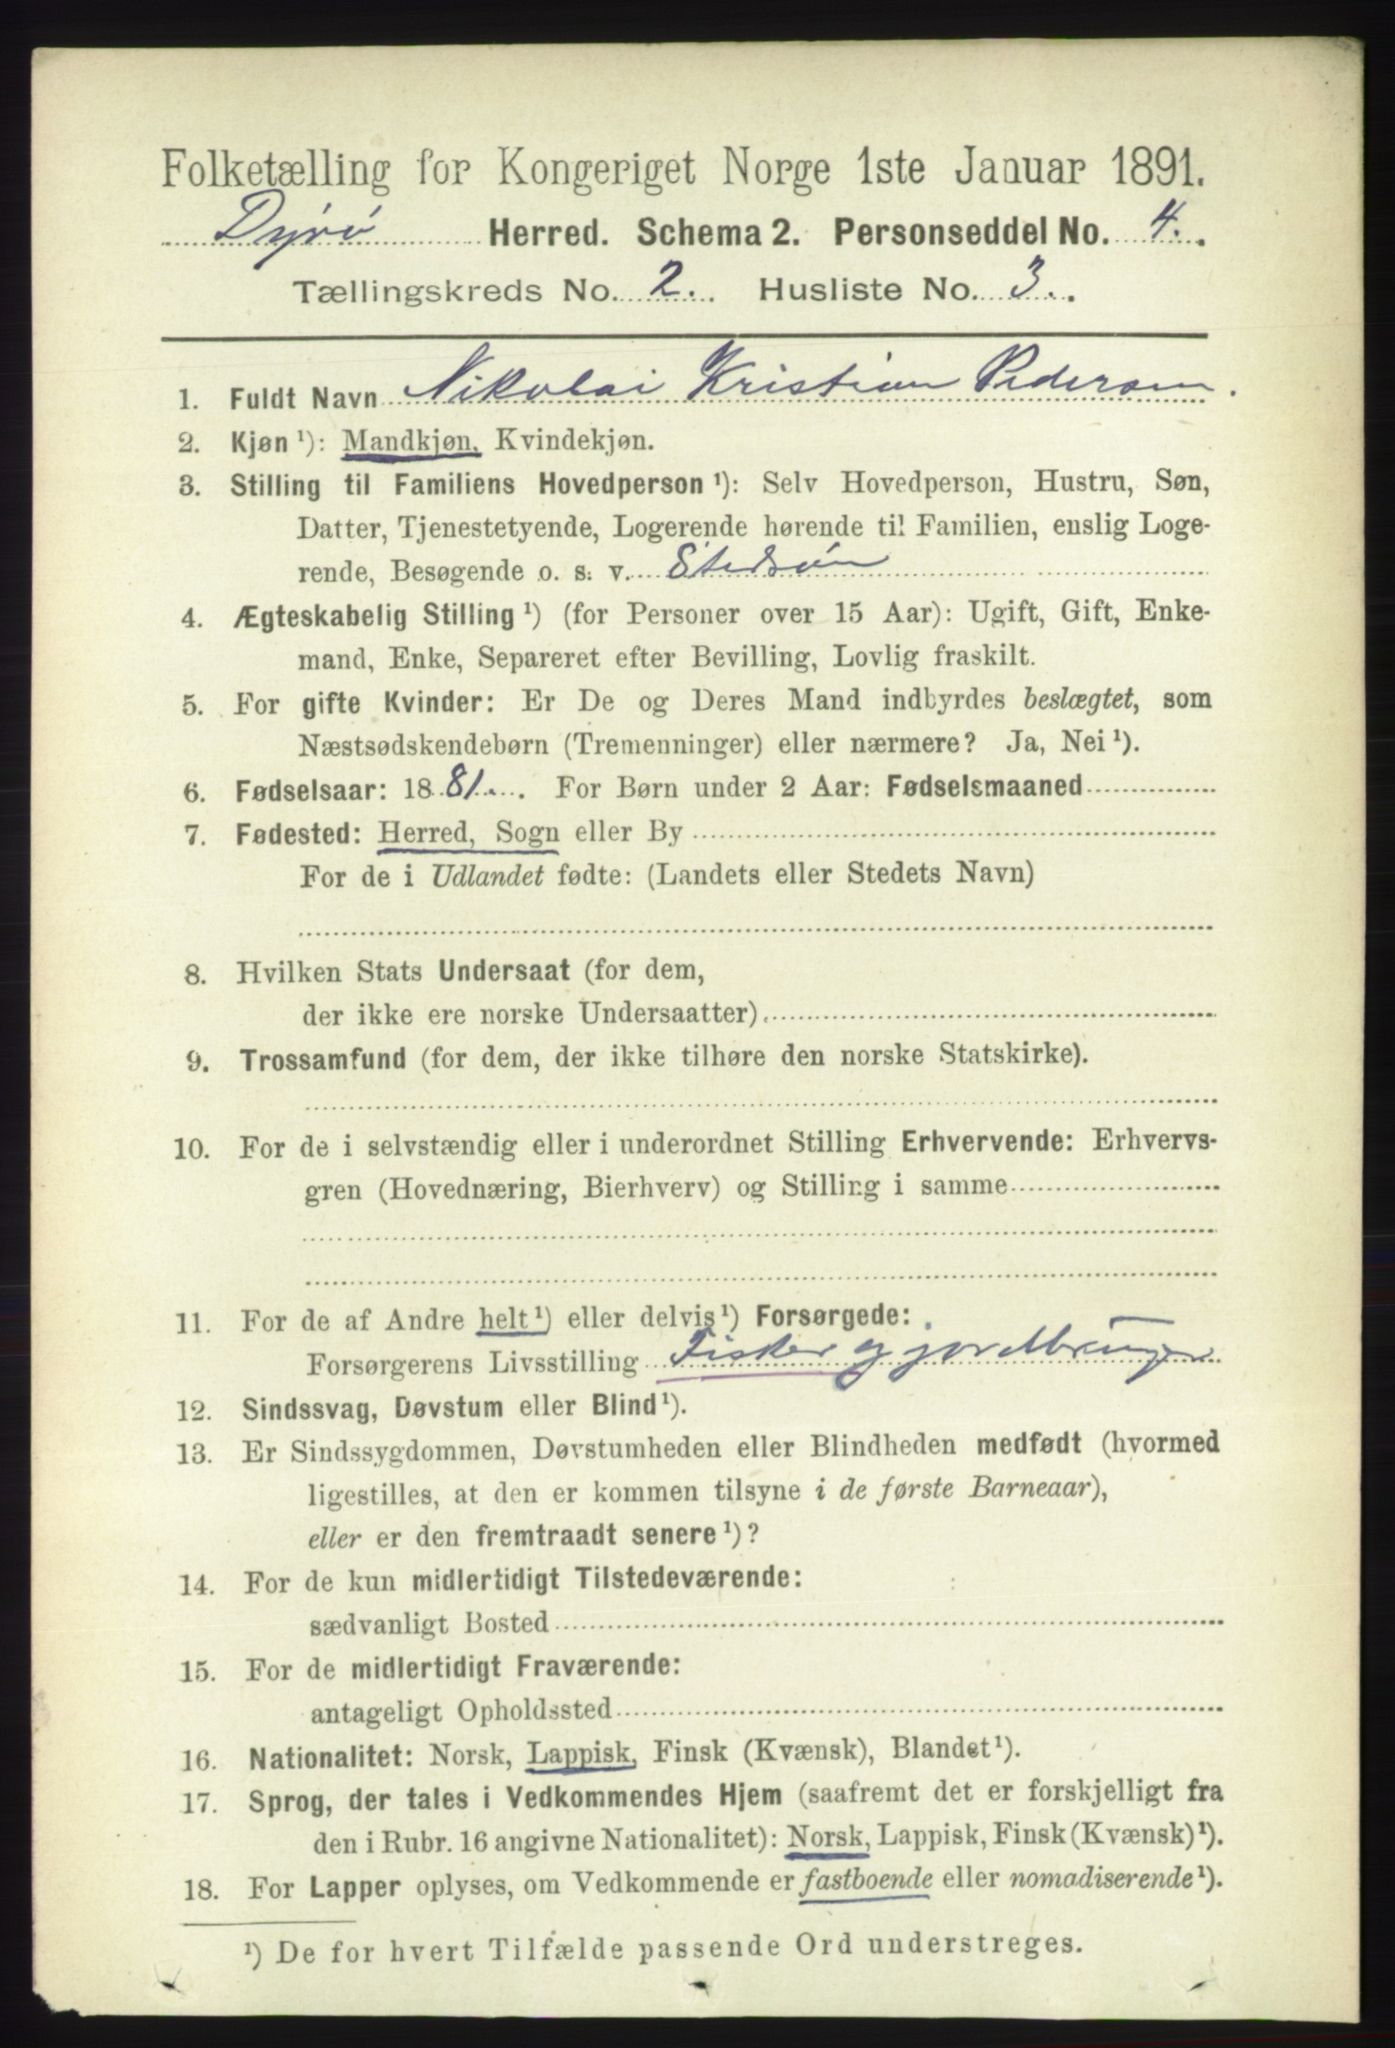 Folketælling for Kongeriget Norge 1ste Januar 1891.
Dyrø Herred. Schema 2. Personseddel No. 4.
Tællingskreds No. 2. Husliste No. 3.
1. Fuldt Navn Nikolai Kristian Pedersen.
2. Kjøn ¹): Mandkjøn, Kvindekjøn.
3. Stilling til Familiens Hovedperson ¹): Selv Hovedperson, Hustru, Søn,
Datter, Tjenestetyende, Logerende hørende til Familien, enslig Loge-
rende, Besøgende o. s. v. Stedsøn
4. Ægteskabelig Stilling ¹) (for Personer over 15 Aar): Ugift, Gift, Enke-
mand, Enke, Separeret efter Bevilling, Lovlig fraskilt.
5. For gifte Kvinder: Er De og Deres Mand indbyrdes beslægtet, som
Næstsødskendebørn (Tremenninger) eller nærmere? Ja, Nei ¹).
6. Fødselsaar: 1881. For Børn under 2 Aar: Fødselsmaaned
7. Fødested: Herred, Sogn eller By
For de i Udlandet fødte: (Landets eller Stedets Navn)
8. Hvilken Stats Undersaat (for dem,
der ikke ere norske Undersaatter)
9. Trossamfund (for dem, der ikke tilhøre den norske Statskirke).
10. For de i selvstændig eller i underordnet Stilling Erhvervende: Erhvervs-
gren (Hovednæring, Bierhverv) og Stilling i samme
11. For de af Andre helt ¹) eller delvis ¹) Forsørgede:
Forsørgerens Livsstilling Fisker og jordbruger
12. Sindssvag, Døvstum eller Blind ¹).
13. Er Sindssygdommen, Døvstumheden eller Blindheden medfødt (hvormed
ligestilles, at den er kommen tilsyne i de første Barneaar),
eller er den fremtraadt senere ¹)?
14. For de kun midlertidigt Tilstedeværende:
sædvanligt Bosted
15. For de midlertidigt Fraværende:
antageligt Opholdssted
16. Nationalitet: Norsk, Lappisk, Finsk (Kvænsk), Blandet ¹).
17. Sprog, der tales i Vedkommendes Hjem (saafremt det er forskjelligt fra
den i Rubr. 16 angivne Nationalitet): Norsk, Lappisk, Finsk (Kvænsk) ¹).
18. For Lapper oplyses, om Vedkommende er fastboende eller nomadiserende ¹).
¹) De for hvert Tilfælde passende Ord understreges.